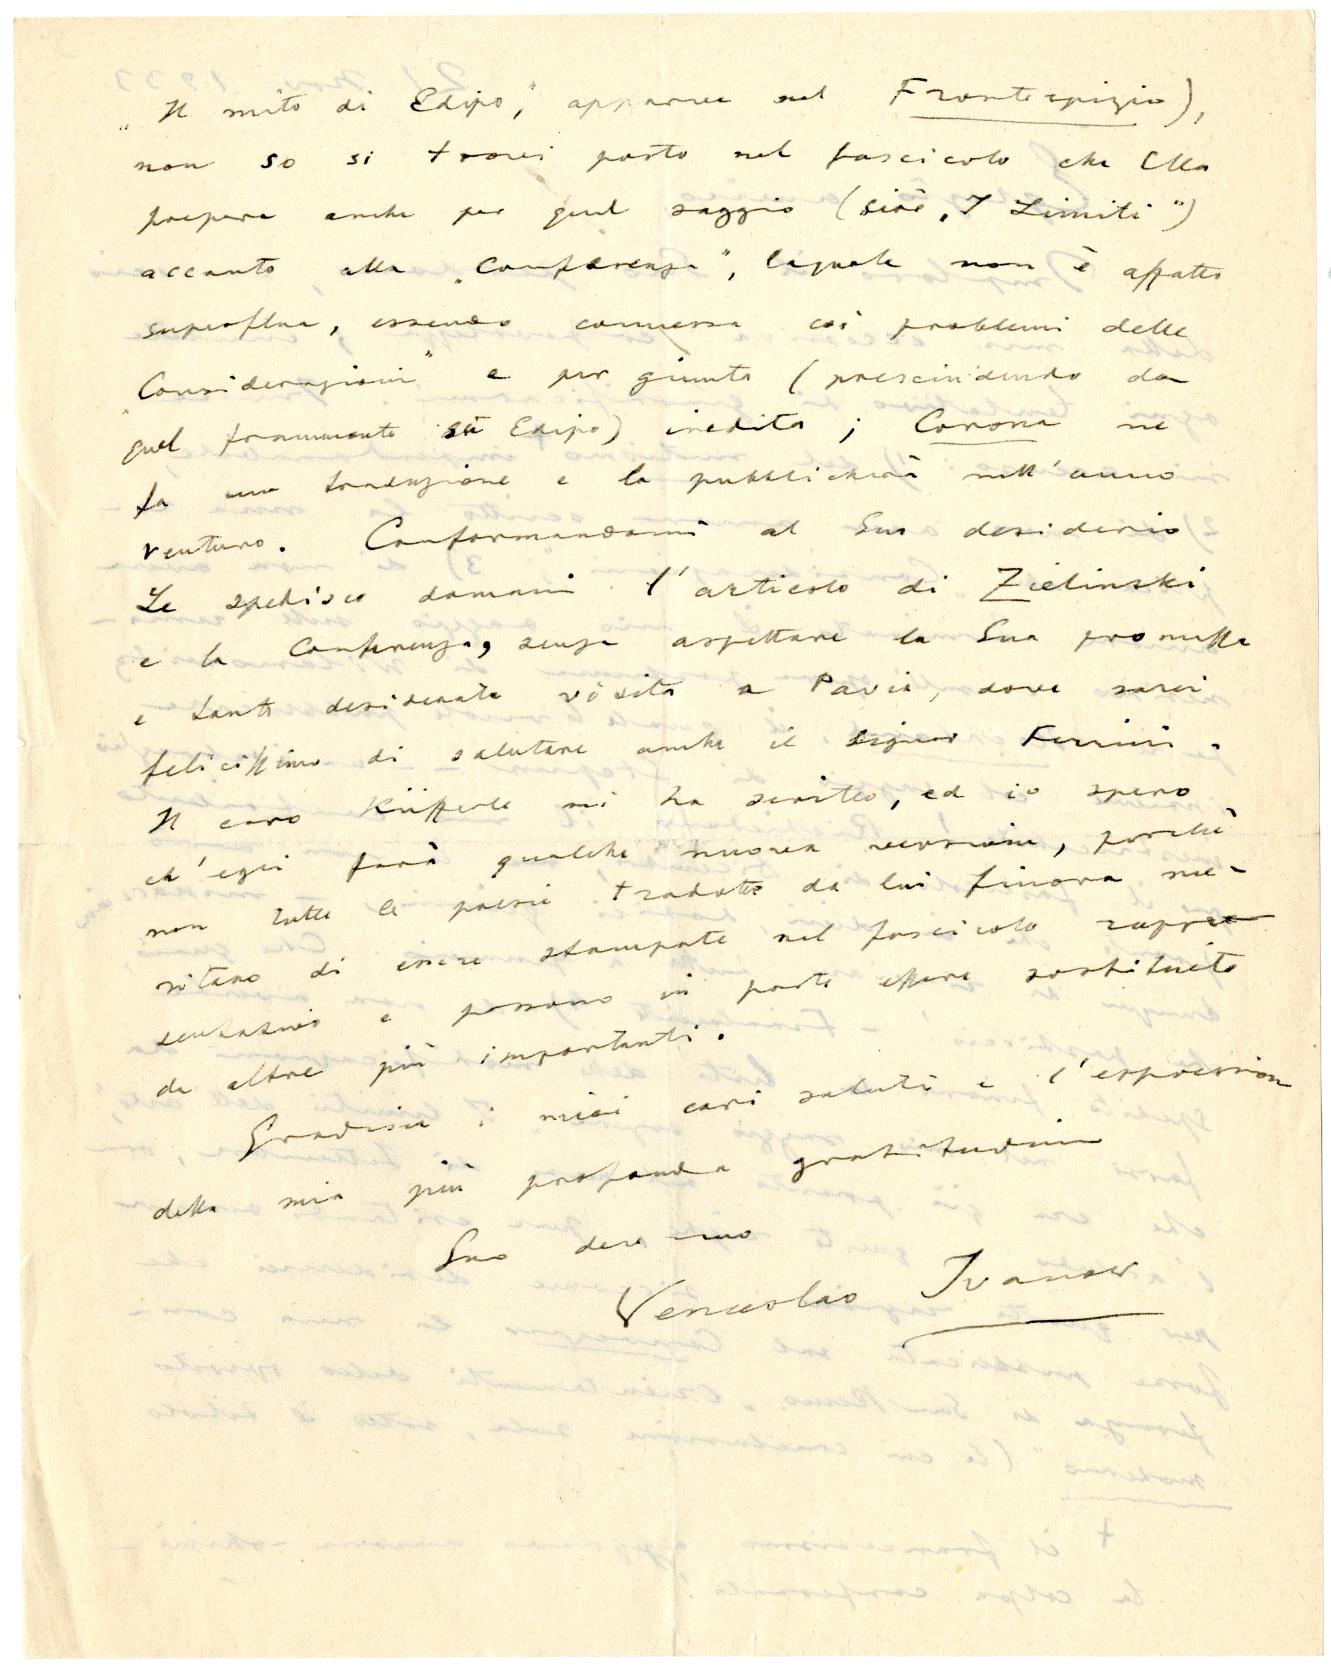 "Il mito di Edipo", apparve nel Frontespizio),
non so si trovi posto nel fascicolo che Ella
prepara anche per quel saggio (cioè "I Limiti")
accanto alla "Conferenza", laquale non è affatto
superflua, essendo connessa coi problemi delle
"Considerazioni" e per giunta (prescindendo da
quel frammento su Edipo) inedita; Corona ne
fa una traduzione e la pubblicherà nell'anno
venturo. Conformandomi al Suo desiderio
Le spedisco domani l'articolo di Zielinski
e la Conferenza, senza aspettare la Sua promessa
e tanto desiderata visita a Pavia, dove sarei
felicissimo di salutare anche il signor Ferrini.
Il caro Küfferle mi ha scritto, ed io spero
ch'egli farà qualche nuova versione, perchè
non tutte le poesie tradotte da lui finora me-
ritano di essere stampate nel fascicolo rappre-
sentativo e possono in parte essere sostituite
da altre più importanti.
Gradisca i miei cari saluti e l'espressione
della mia più profonda gratitudine
Suo dev.mo
Venceslao Ivanov